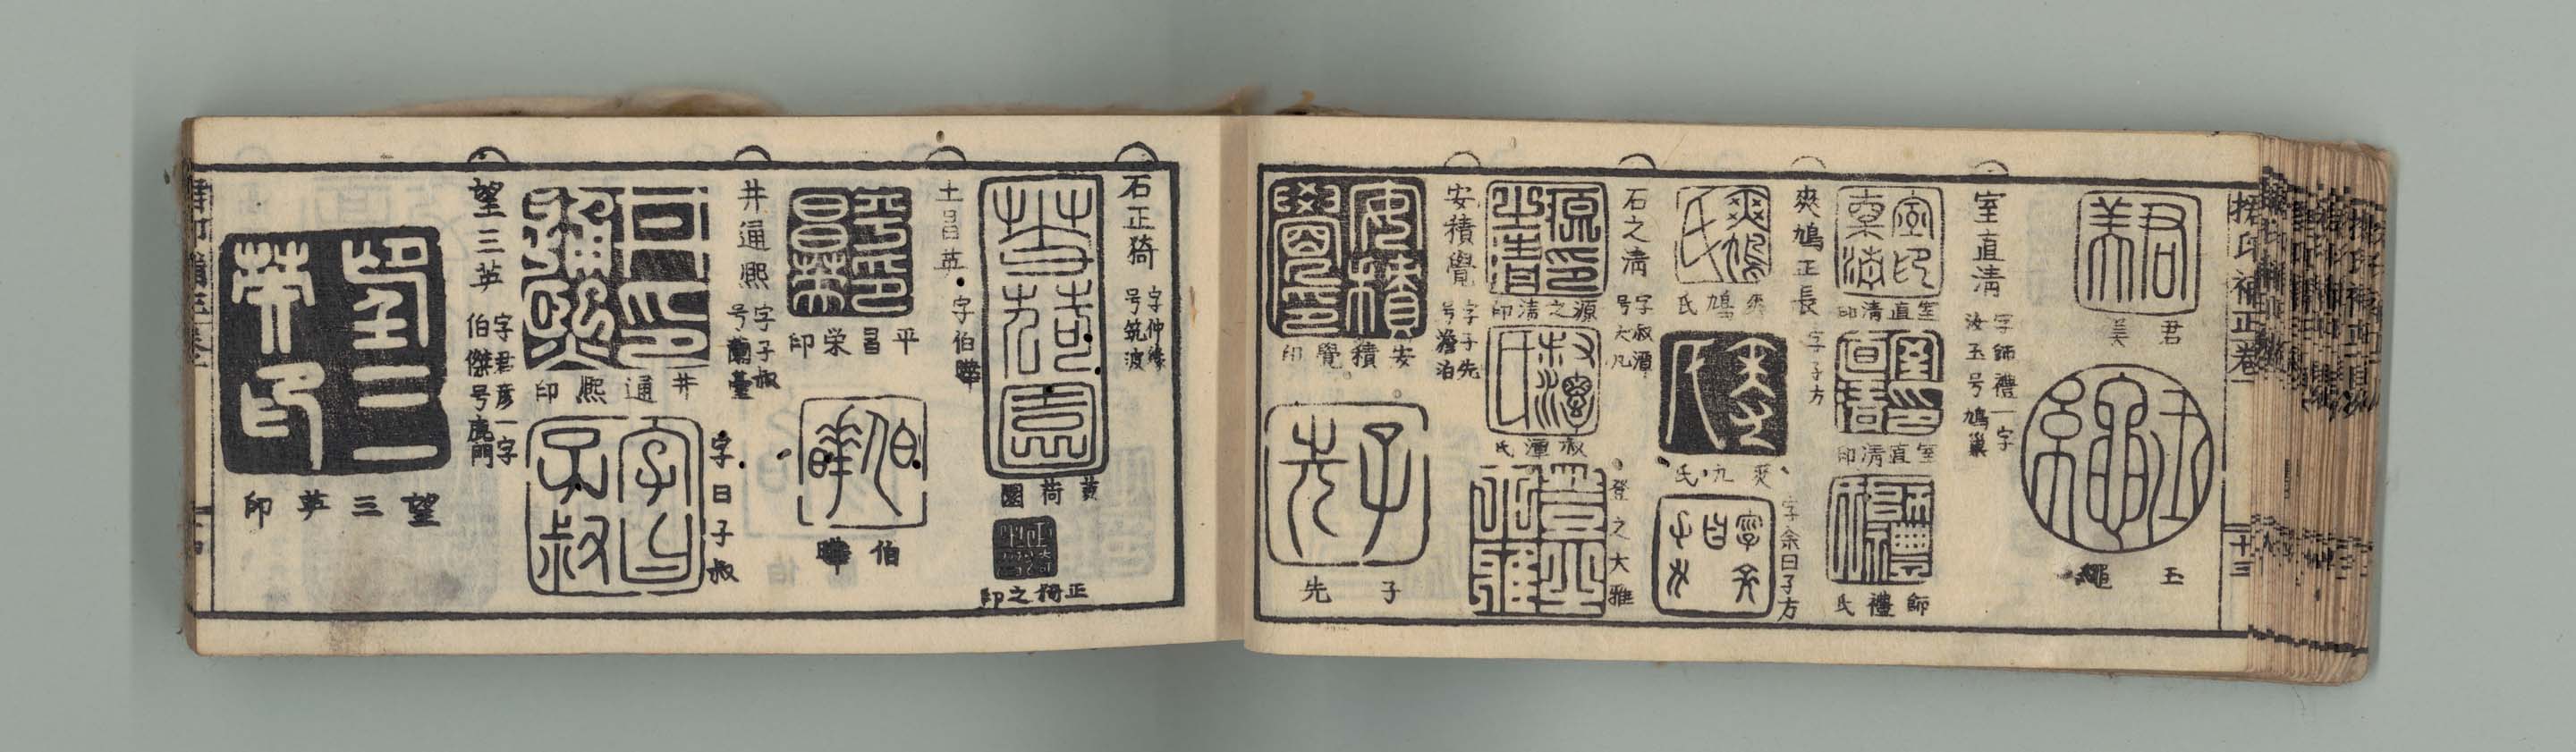 君美
玉繩
室直清 字師禮一字
汝玉号鳩巢
室直清印
室直清印
師禮氏
爽鳩正長 字子方
爽鳩氏
爽九氏
字余曰子方
石之清 字叔潭
号大凡
源之清印
叔潭氏
登之大雅
安積覺 字子先
号澹泊
安積覺印
子先
石正猗 字仲緑
号筑波
黄荷園
正猗之印
土昌英 字伯曄
平昌栄印
伯曄
井通熙 字子叔
号蘭臺
井通熙印
字曰子叔
望三英 字君彦一字
伯傑号鹿門
望三英印